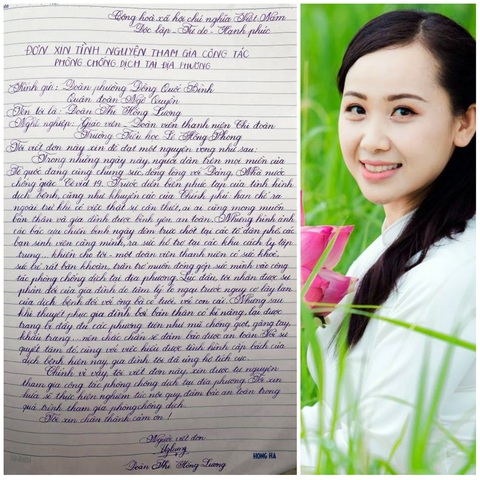 Cộng hoà xã hội chủ nghĩa Việt Nam
Độc lập - Tự do - Hạnh phúc
ĐƠN XIN TÌNH NGUYỆN THAM GIA CÔNG TÁC
PHÒNG CHỐNG DỊCH TẠI ĐỊA PHƯƠNG
Kính gửi: Đoàn phường Đồng Quốc Bình
Quận đoàn Ngô Quyền
Tên tôi là: Đoàn Thị Hồng Lương
Nghề nghiệp: Giáo viên - Đoàn viên thanh niên Chi đoàn
Trường Tiểu học Lê Hồng Phong
Tôi viết đơn này xin đề đạt một nguyện vọng như sau:
Trong những ngày này, người dân trên mọi miền của
Tổ quốc đang cùng chung sức, đồng lòng với Đảng, Nhà nước
chống giặc Covid 19. Trước diễn biến phức tạp của tình hình
dịch bệnh, cũng như khuyến cáo của Chính phủ: hạn chế ra
ngoài trừ khi có việc thật sự cần thiết, ai ai cũng mong muốn
bản thân và gia đình được bình yên, an toàn. Những hình ảnh
các bác sĩ, chiến binh ngày đêm trực chốt tại các tổ dân phố, các
bạn sinh viên cũng mình, ra sức hỗ trợ tại các khu cách ly tập
trung... khiến cho tôi - một đoàn viên thanh niên có sức khoẻ,
sức trẻ rất băn khoăn, trăn trở muốn đóng góp sức mình vào công
tác phòng chống dịch tại địa phương. Lúc đầu, tôi nhận được sự
phản đối của gia đình do tâm lý lo ngại trước nguy cơ lây lan
của dịch bệnh đối với ông bà có tuổi, với con cái. Nhưng sau
khi thuyết phục gia đình bởi bản thân có kĩ năng, lại được
trang bị đầy đủ các phương tiện như mũ chống giọt, găng tay,
khẩu trang... nên chắc chắn sẽ đảm bảo được an toàn. Với sự
quyết tâm đó, cùng với việc hiểu được tình hình cấp bách của
dịch bệnh hiện nay, gia đình tôi đã ủng hộ tích cực.
Chính vì vậy, tôi viết đơn này, xin được tự nguyện
tham gia công tác phòng chống dịch tại địa phương. Tôi xin
hứa sẽ thực hiện nghiêm túc nội quy, đảm bảo an toàn trong
quá trình tham gia phòng chống dịch.
Tôi xin chân thành cảm ơn!
Người viết đơn
Đoàn Thị Hồng Lương
HONG HA